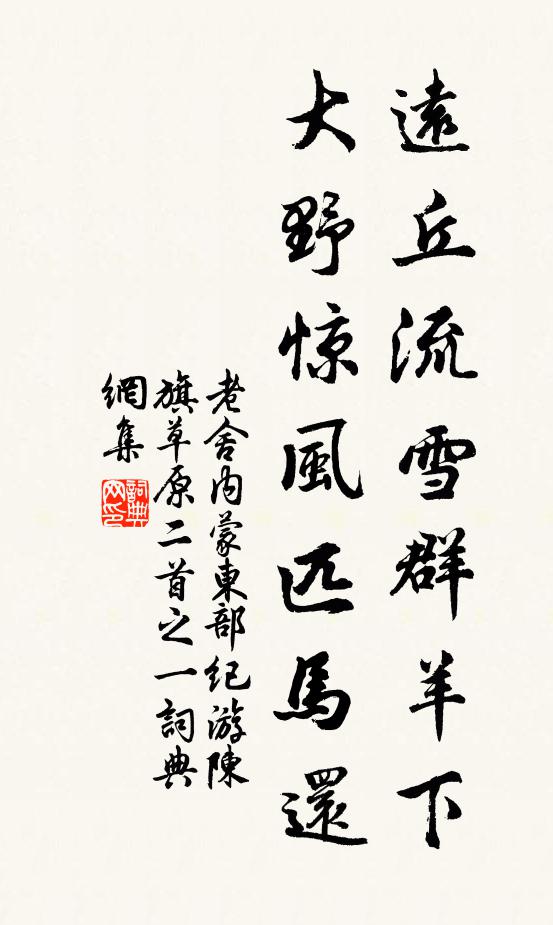 遠丘流雪群羊下
大野惊風匹馬還
老舍内蒙東部纪游陳
旗草原二首之一詞典
網集
詞典
网印